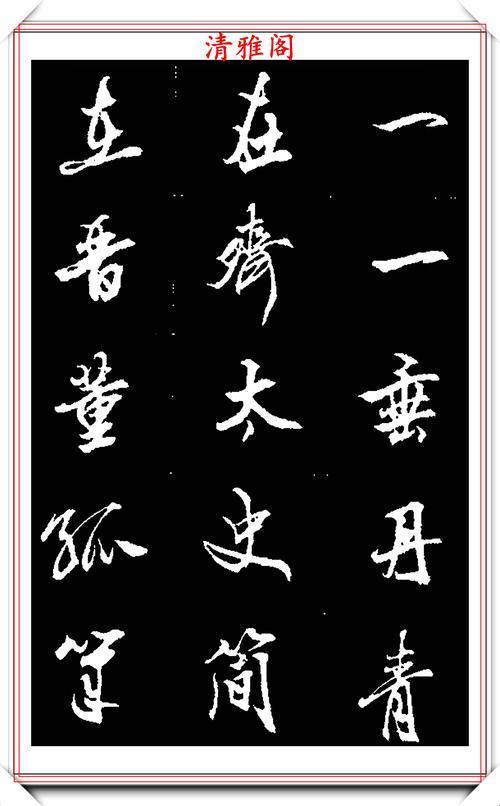 清雅阁
一一垂丹青
在齊太史簡
在晋董狐筆